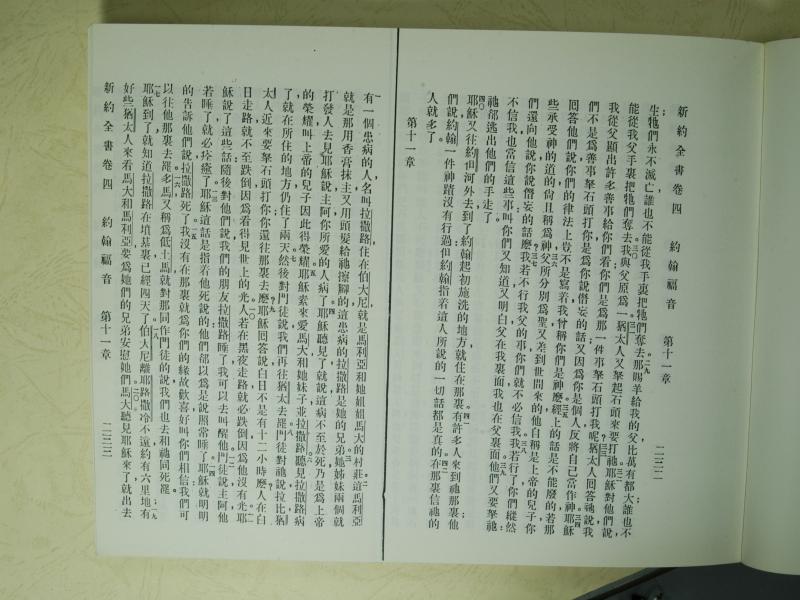 新約全書卷四 約翰福音 第十一章 二三二
生牠們永不滅亡誰也不能從我手裏把牠們奪去那賜羊給我的父比萬有都大誰也不
能從我父手裏把牠們奪去我與父原爲一猶太人又拏起石頭來要打祂耶穌對他們說
我從父顯出許多善事給你們看你們是爲那一件事拏石頭打我呢猶太人回答祂說我
們不是爲善事拏石頭打你是爲你說僭妄的話又因爲你是個人反將自己當作神耶穌
回答他們說你們的律法上豈不是寫着我曾稱你們是神麼經上的話是不能廢的若那
些承受神的道的尙且稱爲神父所分別爲聖又差到世間來的他自稱是上帝的兒子你
們還向他說你說僭妄的話麼我若不行我父的事你們就不必信我我若行了你們縱然
不信我也當信這些事叫你們又知道又明白父在我裏面我也在父裏面他們又要拏祂
祂都逃出他們的手走了
耶穌又往約但河外去到了約翰起初施洗的地方就住在那裏有許多人來到祂那裏他
們說約翰一件神蹟沒有行過但約翰指着這人所說的一切話都是真的在那裏信祂的
人就多了
第十一章
有一個患病的人名叫拉撒路住在伯大尼就是馬利亞和她姐姐馬大的村莊這馬利亞
就是那用香膏抹主又用頭髮給祂擦腳的這患病的拉撒路是她的兄弟她姊妹兩個就
打發人去見耶穌說主阿你所愛的人病了耶穌聽見了就說這病不至於死乃是爲上帝
的榮耀叫上帝的兒子因此得榮耀耶穌素來愛馬大和她妹子並拉撒路聽見拉撒路病
了就在所住的地方仍住了兩天然後對門徒說我們再往猶太去罷門徒對祂說拉比猶
太人近來要拏石頭打你你還往那裏去麼耶穌回答說白日不是有十二小時麼人在白
日走路就不至跌倒因爲看得見世上的光人若在黑夜走路就必跌倒因爲他沒有光耶
穌說了這些話隨後對他們說我們的朋友拉撒路睡了我可以去叫醒他門徒說主阿他
若睡了就必痊瘉了耶穌這話是指着他死說的他們都以爲是說照常睡了耶穌就明明
的告訴他們說拉撒路死了我沒有在那裏就爲你們的緣故歡喜好叫你們相信我們可
以往他那裏去罷多馬又稱爲低土馬就對那同作門徒的說我們也去和祂同死罷
耶穌到了就知道拉撒路在墳墓裏已經四天了伯大尼離耶路撒冷不遠約有六里地有
好些猶太人來看馬大和馬利亞要爲她們的兄弟安慰她們馬大聽見耶穌來了就出去
新約全書卷四 約翰福音 第十一章 二三三